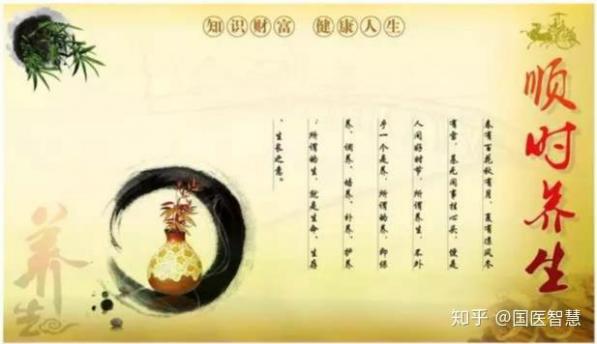 知识财富 健康人生
顺时养生
春有百花秋有月，夏有凉风冬
有雪，若无闲事挂心头，便是
人间好时节，所谓养生，不外
乎一个是养，所谓的养，即保
养、调养、培养、补养、护养
；所谓的生，就是生命、生存
、生长之意。
养生
知乎 @国医智慧